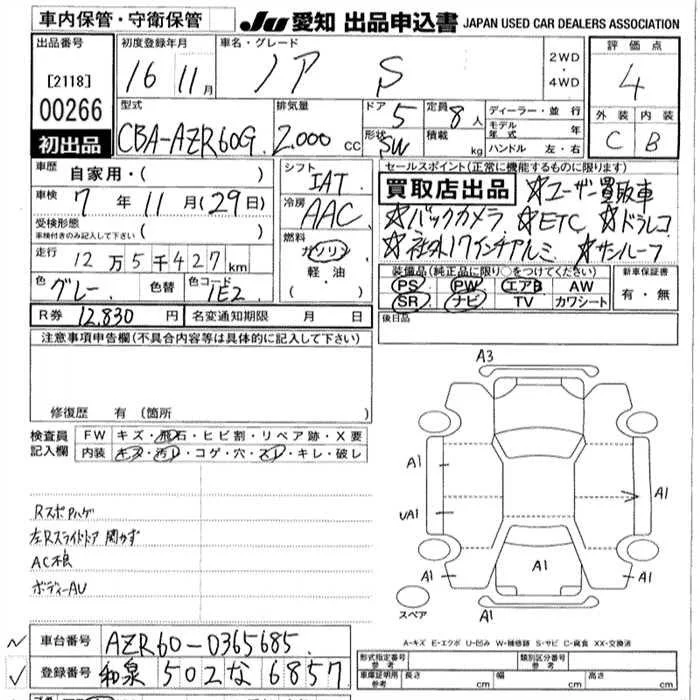 車内保管・守衛保管
JU 愛知 出品申込書 JAPAN USED CAR DEALERS ASSOCIATION
出品番号
[2118]
00266
初出品
初度登録年月
16 11月
車名・グレード
ノア S
2WD
・
4WD
評価点
4
外装 内装
C B
型式
CBA-AZR60G
排気量
2.000 cc
ドア 5
形状 SW
定員 8人
積載 kg
ディーラー・並行
モデル年式 年
ハンドル 左・右
車歴 自家用・( )
車検 7年11月(29日)
受検形態
車検付きのみ記入して下さい ( )
走行 12万5千427km
色 グレー
色替
色コード 1E2
シフト
IAT
冷房
AAC
燃料
ガソリン
軽油
( ・ )
セールスポイント(正常に機能するものに限ります)
買取店出品 ☆ユーザー買取車
☆バックカメラ ☆ETC ☆ドラレコ
☆社外17インチアルミ ☆サンルーフ
装備品(純正品に限り○をつけてください)
PS PW エアB AW
SR ナビ TV カワシート
新車保証書
有・無
R券 12,830円 名変通知期限 月 日
後日品
注意事項申告欄(不具合内容等は具体的に記入して下さい)
修復歴 有(箇所 )
検査員
記入欄
FW キズ・飛石・ヒビ割・リペア跡・X要
内装 キズ・汚レ・コゲ・穴・スレ・キレ・破レ
RスポPハゲ
左Rスライドドア 開かず
ボディーAU
A3
A1
A1
A1
A1
A1
A1
A1
スペア
A-キズ E-エクボ U-凹み W-補修跡 S-サビ C-腐食 XX-交換済
車台番号 AZR60-0365685
登録番号 和泉 502 な 6857
形式指定番号
参考
類別区分番号
参考
車庫証明用
参考
長さ 幅 高さ